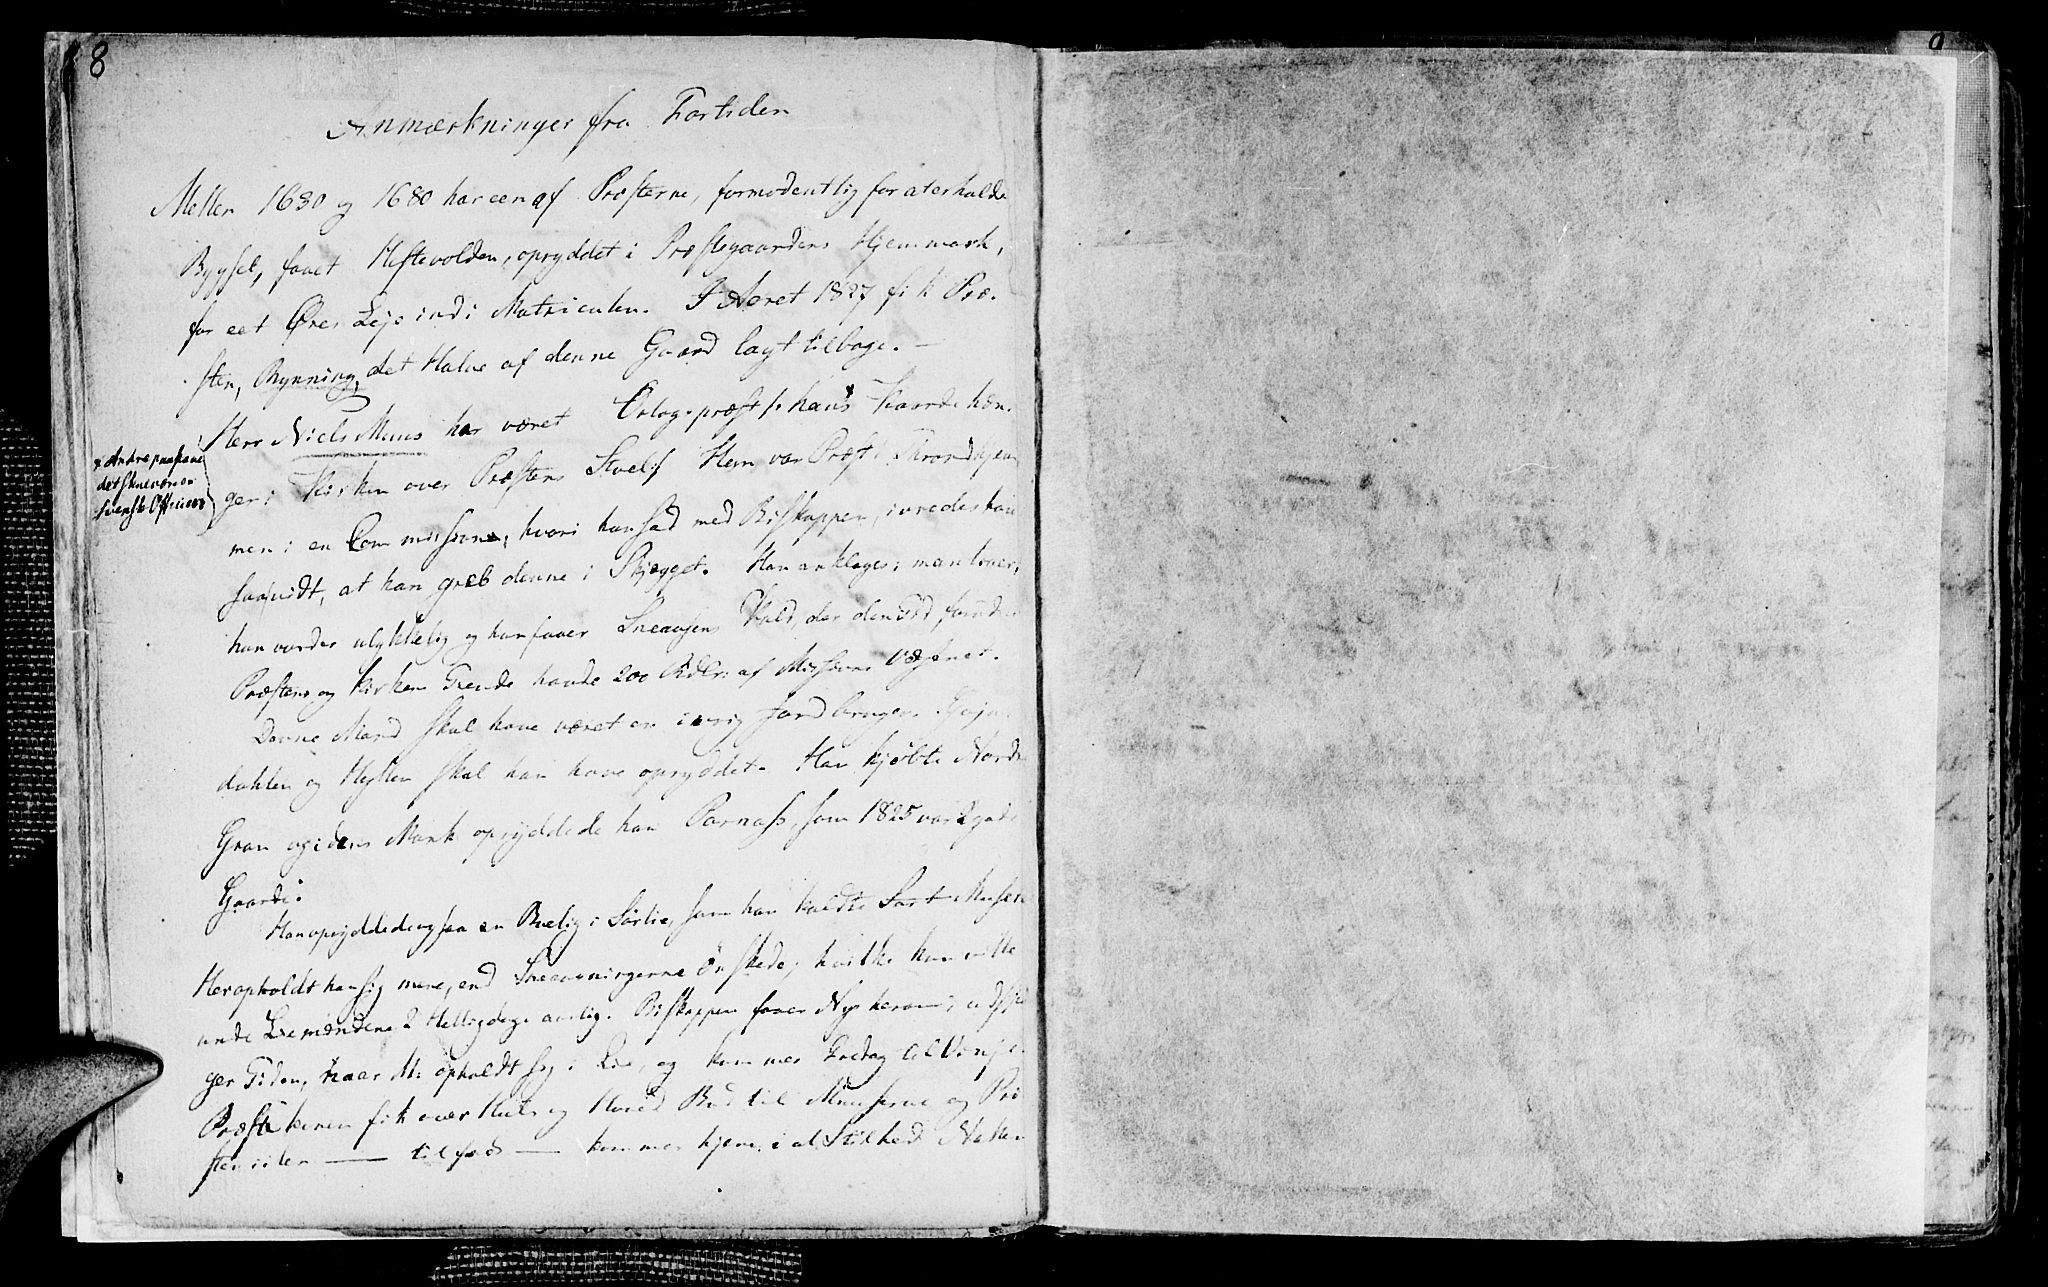 8
Anmærkninger fra Fortiden
Mellem 1630 og 1680 har een af Præsterne, formodentlig for at erholde
Bygsel, faaet Heftevolden, opryddet i Præstegaardens Hjemmark,
for eet Øres Leje ind i Matriculen. I Aaret 1827 fik Præ-
sten, Rynning, det Halve af denne Gaard lagt tilbage. —
Herr Niels Muus har været Orlogspræst /: hans Kaarde hæn-
x Andre paastaae
det skue være en
svensk Officers
ger i Kirken over Præstens Stoel :/ Hem var Præst i Throndhjem
men i en Commission, hvori han sad med Biskoppen, vrededes han
saavidt, at han greb denne i Skjægget. Han anklages; man troer,
han vorder ulykkelig og han faaer Sneaasens Kald, der den Tid foruden
Præstens og Kirken Tiende havde 200 Rdlr. af Missions Væsenet.
Denne Mand skal have været en ivrig Jordbruger.
dahlen og skal han have opryddet. Han kjøbte Nordre
Gran og i dens Mark opryddede han Parnass, som 1825 var 2 gode
Gaarde.
Han opryddede ogsaa en Boelig i Sørlie, som han kaldte Sort Musen
Her opholdt han sig mere, end Sneaasningerne ønskede, hvilke han vilde
unde Liemændene 2 Helligdage aarlig. Biskoppen faaer Nys herom,
ger Tiden, naar M: opholdt sig i Lie, og kommer Løverdag til Vinje.
Præstekonen fik over Hals og Hoved Bud til Muuserne og Præ-
sten iiler — til fods — kommer hjem i al Stilhed Natten